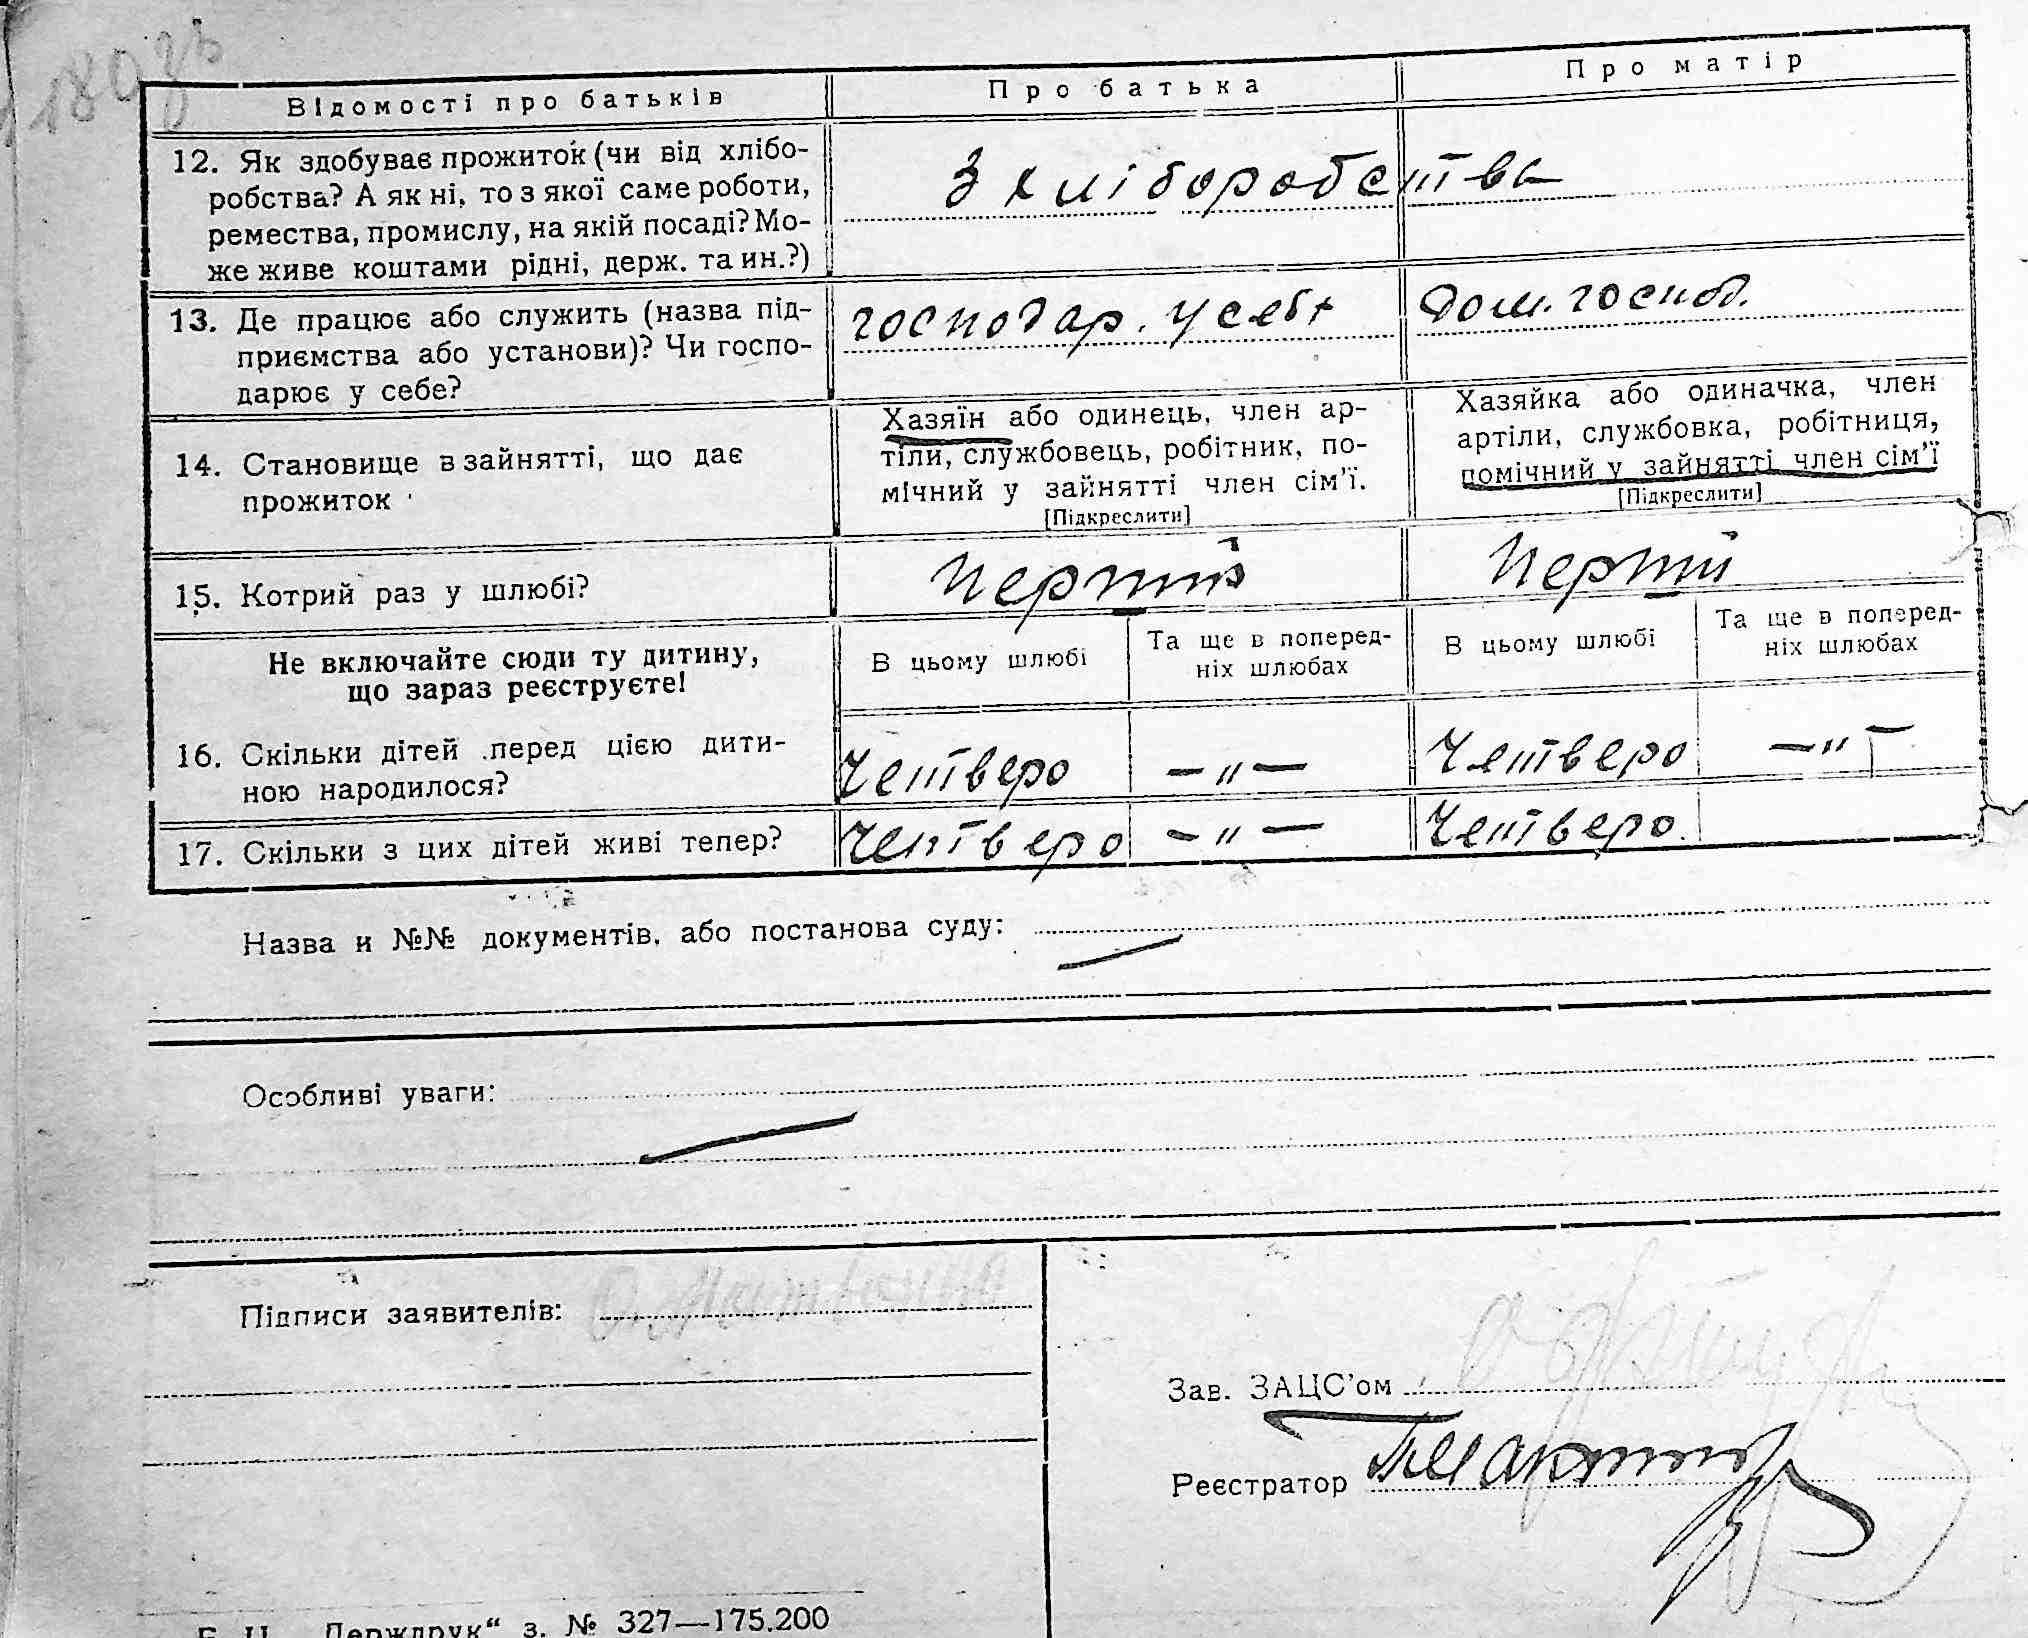 180 зв
Відомості про батьків
Про батька
Про матір
12. Як здобуває прожиток (чи від хлібо-
робства? А як ні, то з якої саме роботи,
ремества, промислу, на якій посаді? Мо-
же живе коштами рідні, держ. та ин.?)
З хліборобства
13. Де працює або служить (назва під-
приємства або установи)? Чи госпо-
дарює у себе?
господар. у себе
Дом. господ.
14. Становище в зайнятті, що дає
прожиток
Хазяїн або одинець, член ар-
тіли, службовець, робітник, по-
мічний у зайнятті член сім'ї.
[Підкреслити]
Хазяйка або одиначка, член
артіли, службовка, робітниця,
помічний у зайнятті член сім'ї
[Підкреслити]
15. Котрий раз у шлюбі?
Перший
Перший
Не включайте сюди ту дитину,
що зараз реєструєте!
В цьому шлюбі
Та ще в поперед-
ніх шлюбах
В цьому шлюбі
Та ще в поперед-
ніх шлюбах
16. Скільки дітей перед цією дити-
ною народилося?
Четверо
—"—
Четверо
—"—
17. Скільки з цих дітей живі тепер?
Четверо
—"—
Четверо.
Назва и №№ документів, або постанова суду:
Особливі уваги:
Підписи заявителів:
Зав. ЗАЦС'ом
Реєстратор
Держдрук“ з. № 327—175.200